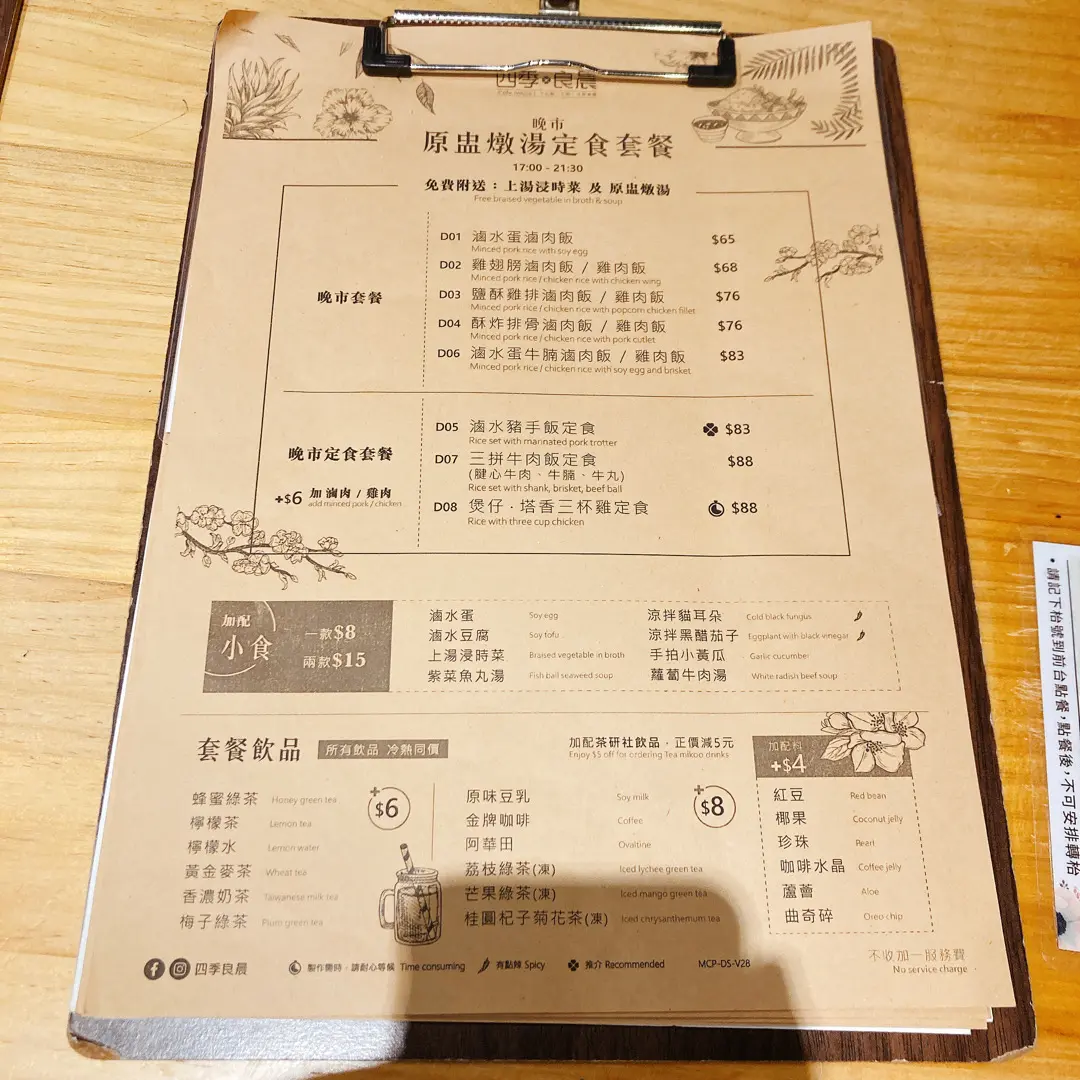 四季良晨
晚市
原盅燉湯定食套餐
17:00 - 21:30
免費附送：上湯浸時菜 及 原盅燉湯
Free braised vegetable in broth & soup
晚市套餐
D01 滷水蛋滷肉飯 $65
Minced pork rice with soy egg
D02 雞翅膀滷肉飯 / 雞肉飯 $68
Minced pork rice / chicken rice with chicken wing
D03 鹽酥雞排滷肉飯 / 雞肉飯 $76
Minced pork rice / chicken rice with popcorn chicken fillet
D04 酥炸排骨滷肉飯 / 雞肉飯 $76
Minced pork rice / chicken rice with pork cutlet
D06 滷水蛋牛腩滷肉飯 / 雞肉飯 $83
Minced pork rice / chicken rice with soy egg and brisket
晚市定食套餐
+$6 加 滷肉 / 雞肉
add minced pork / chicken
D05 滷水豬手飯定食 $83
Rice set with marinated pork trotter
D07 三拼牛肉飯定食 $88
(腱心牛肉、牛腩、牛丸)
Rice set with shank, brisket, beef ball
D08 煲仔 · 塔香三杯雞定食 $88
Rice with three cup chicken
加配
小食
一款$8
兩款$15
滷水蛋 Soy egg
滷水豆腐 Soy tofu
上湯浸時菜 Braised vegetable in broth
紫菜魚丸湯 Fish ball seaweed soup
涼拌貓耳朵 Cold black fungus
涼拌黑醋茄子 Eggplant with black vinegar
手拍小黃瓜 Garlic cucumber
蘿蔔牛肉湯 White radish beef soup
套餐飲品 所有飲品 冷熱同價
加配茶研社飲品，正價減5元
Enjoy $5 off for ordering Tea mikoo drinks
+$6
蜂蜜綠茶 Honey green tea
檸檬茶 Lemon tea
檸檬水 Lemon water
黃金麥茶 Wheat tea
香濃奶茶 Taiwanese milk tea
梅子綠茶 Plum green tea
+$8
原味豆乳 Soy milk
金牌咖啡 Coffee
阿華田 Ovaltine
荔枝綠茶(凍) Iced lychee green tea
芒果綠茶(凍) Iced mango green tea
桂圓杞子菊花茶(凍) Iced chrysanthemum tea
加配料
+$4
紅豆 Red bean
椰果 Coconut jelly
珍珠 Pearl
咖啡水晶 Coffee jelly
蘆薈 Aloe
曲奇碎 Oreo chip
四季良晨 製作需時，請耐心等候 Time consuming 有點辣 Spicy 推介 Recommended MCP-DS-V28
不收加一服務費
No service charge
• 請記下枱號到前台點餐，點餐後，不可安排轉枱